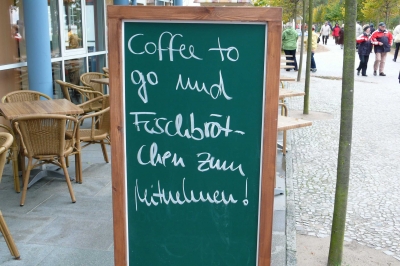 Coffee to
go und
Fischbröt-
chen zum
Mitnehmen!